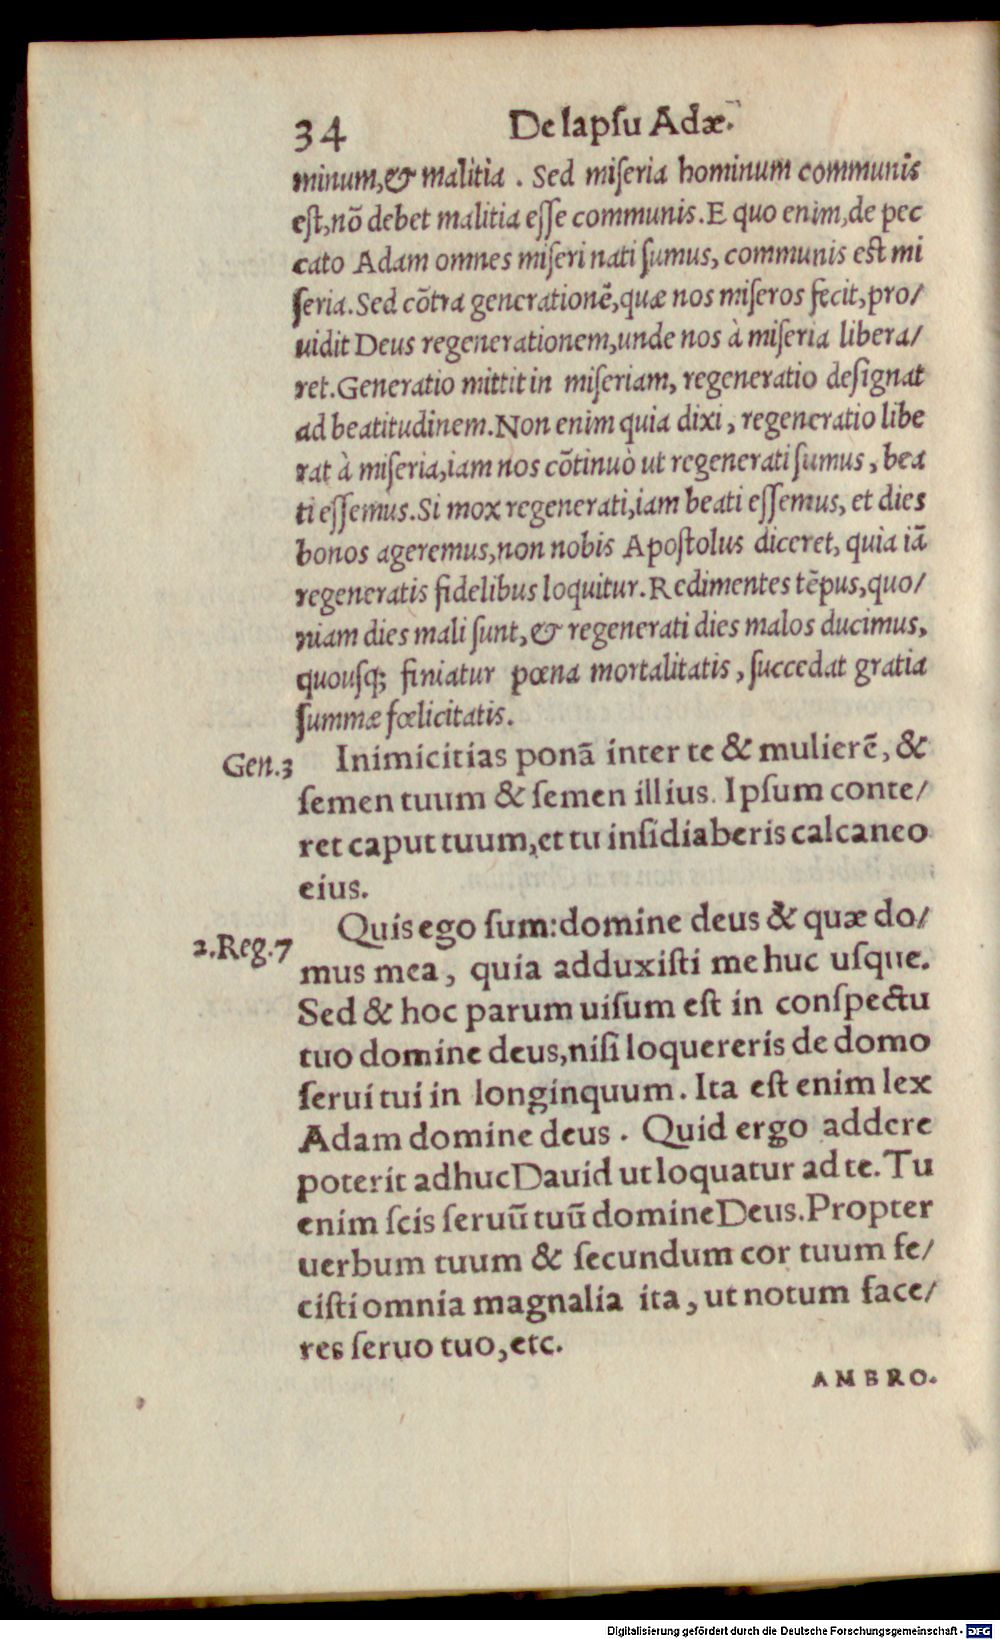 34 De lapſu Adæ.
minum,& malitia . Sed miſeria hominum communis
eſt,nõ debet malitia eſſe communis.E quo enim,de pec
cato Adam omnes miſeri nati ſumus, communis eſt mi
ſeria.Sed cõtra generationẽ,quæ nos miſeros fecit,pro/
uidit Deus regenerationem,unde nos à miſeria libera/
ret.Generatio mittit in miſeriam, regeneratio deſignat
ad beatitudinem.Non enim quia dixi, regeneratio libe
rat à miſeria,iam nos cõtinuò ut regenerati ſumus, bea
ti eſſemus.Si mox regenerati,iam beati eſſemus, et dies
bonos ageremus,non nobis Apoſtolus diceret, quia iã
regeneratis fidelibus loquitur.Redimentes tẽpus,quo/
niam dies mali ſunt,& regenerati dies malos ducimus,
quouſq; finiatur pœna mortalitatis, ſuccedat gratia
ſummæ fœlicitatis.
Gen.3 Inimicitias ponã inter te & mulierẽ, &
ſemen tuum & ſemen illius. Ipſum conte/
ret caput tuum,et tu inſidiaberis calcaneo
eius.
2.Reg.7 Quis ego ſum:domine deus & quæ do/
mus mea, quia adduxiſti me huc uſque.
Sed & hoc parum uiſum eſt in conſpectu
tuo domine deus,niſi loquereris de domo
ſerui tui in longinquum. Ita eſt enim lex
Adam domine deus . Quid ergo addere
poterit adhuc Dauid ut loquatur ad te.Tu
enim ſcis ſeruũ tuũ domine Deus.Propter
uerbum tuum & ſecundum cor tuum fe/
ciſti omnia magnalia ita, ut notum face/
res ſeruo tuo,etc.
AMBRO.
Digitalisierung gefördert durch die Deutsche Forschungsgemeinschaft - DFG